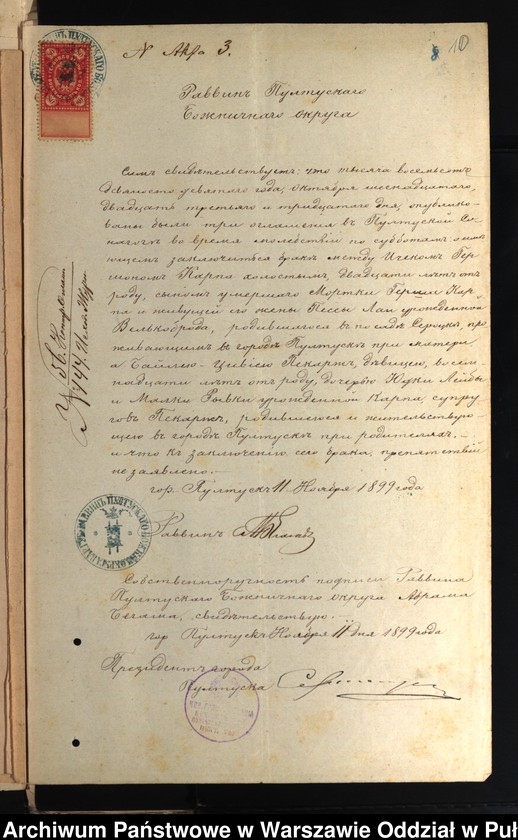 N Акта 3.
10
Раввинъ Пултускаго
Божничнаго округа
Симъ свидетельствуетъ: что тысяча восемьсотъ
девяносто девятаго года, октября шестнадцатаго,
двадцать третьяго и тридцатаго дня, опублико-
ваны были три оглашенія въ Пултуской Си-
нагогѣ во время молебствій по субботамъ о имѣ-
ющемъ заключиться бракѣ между Ицекомъ Гер
шономъ Карпа холостымъ, двадцати лѣтъ отъ
роду, сыномъ умершаго Мортки Герши Кар
па и живущей его жены Песы Лаи урожденной
Велькоброда, родившагося въ посадѣ Сероцкъ про
живающимъ въ городѣ Пултускѣ при матери
а Байлею-Цивіею Пекаржъ, дѣвицею, восем
надцати лѣтъ отъ роду, дочерью Ицки Лейбы
и Малки Рывки урожденной Карпа, супру
говъ Пекаржъ, родившеюся и жительствую-
щею въ городѣ Пултускѣ при родителяхъ. —
и что къ заключенію сего брака, препятствій
не заявлено. —
гор. Пултускъ 11 Ноября 1899 года
Раввинъ
Собственноручность подписи Раввина
Пултускаго Божничнаго округа Аврама
свидѣтельствую. —
гор Пултускъ Ноября 11 дня 1899 года
Президентъ города
Пултуска
Archiwum Państwowe w Warszawie Oddział w Puł